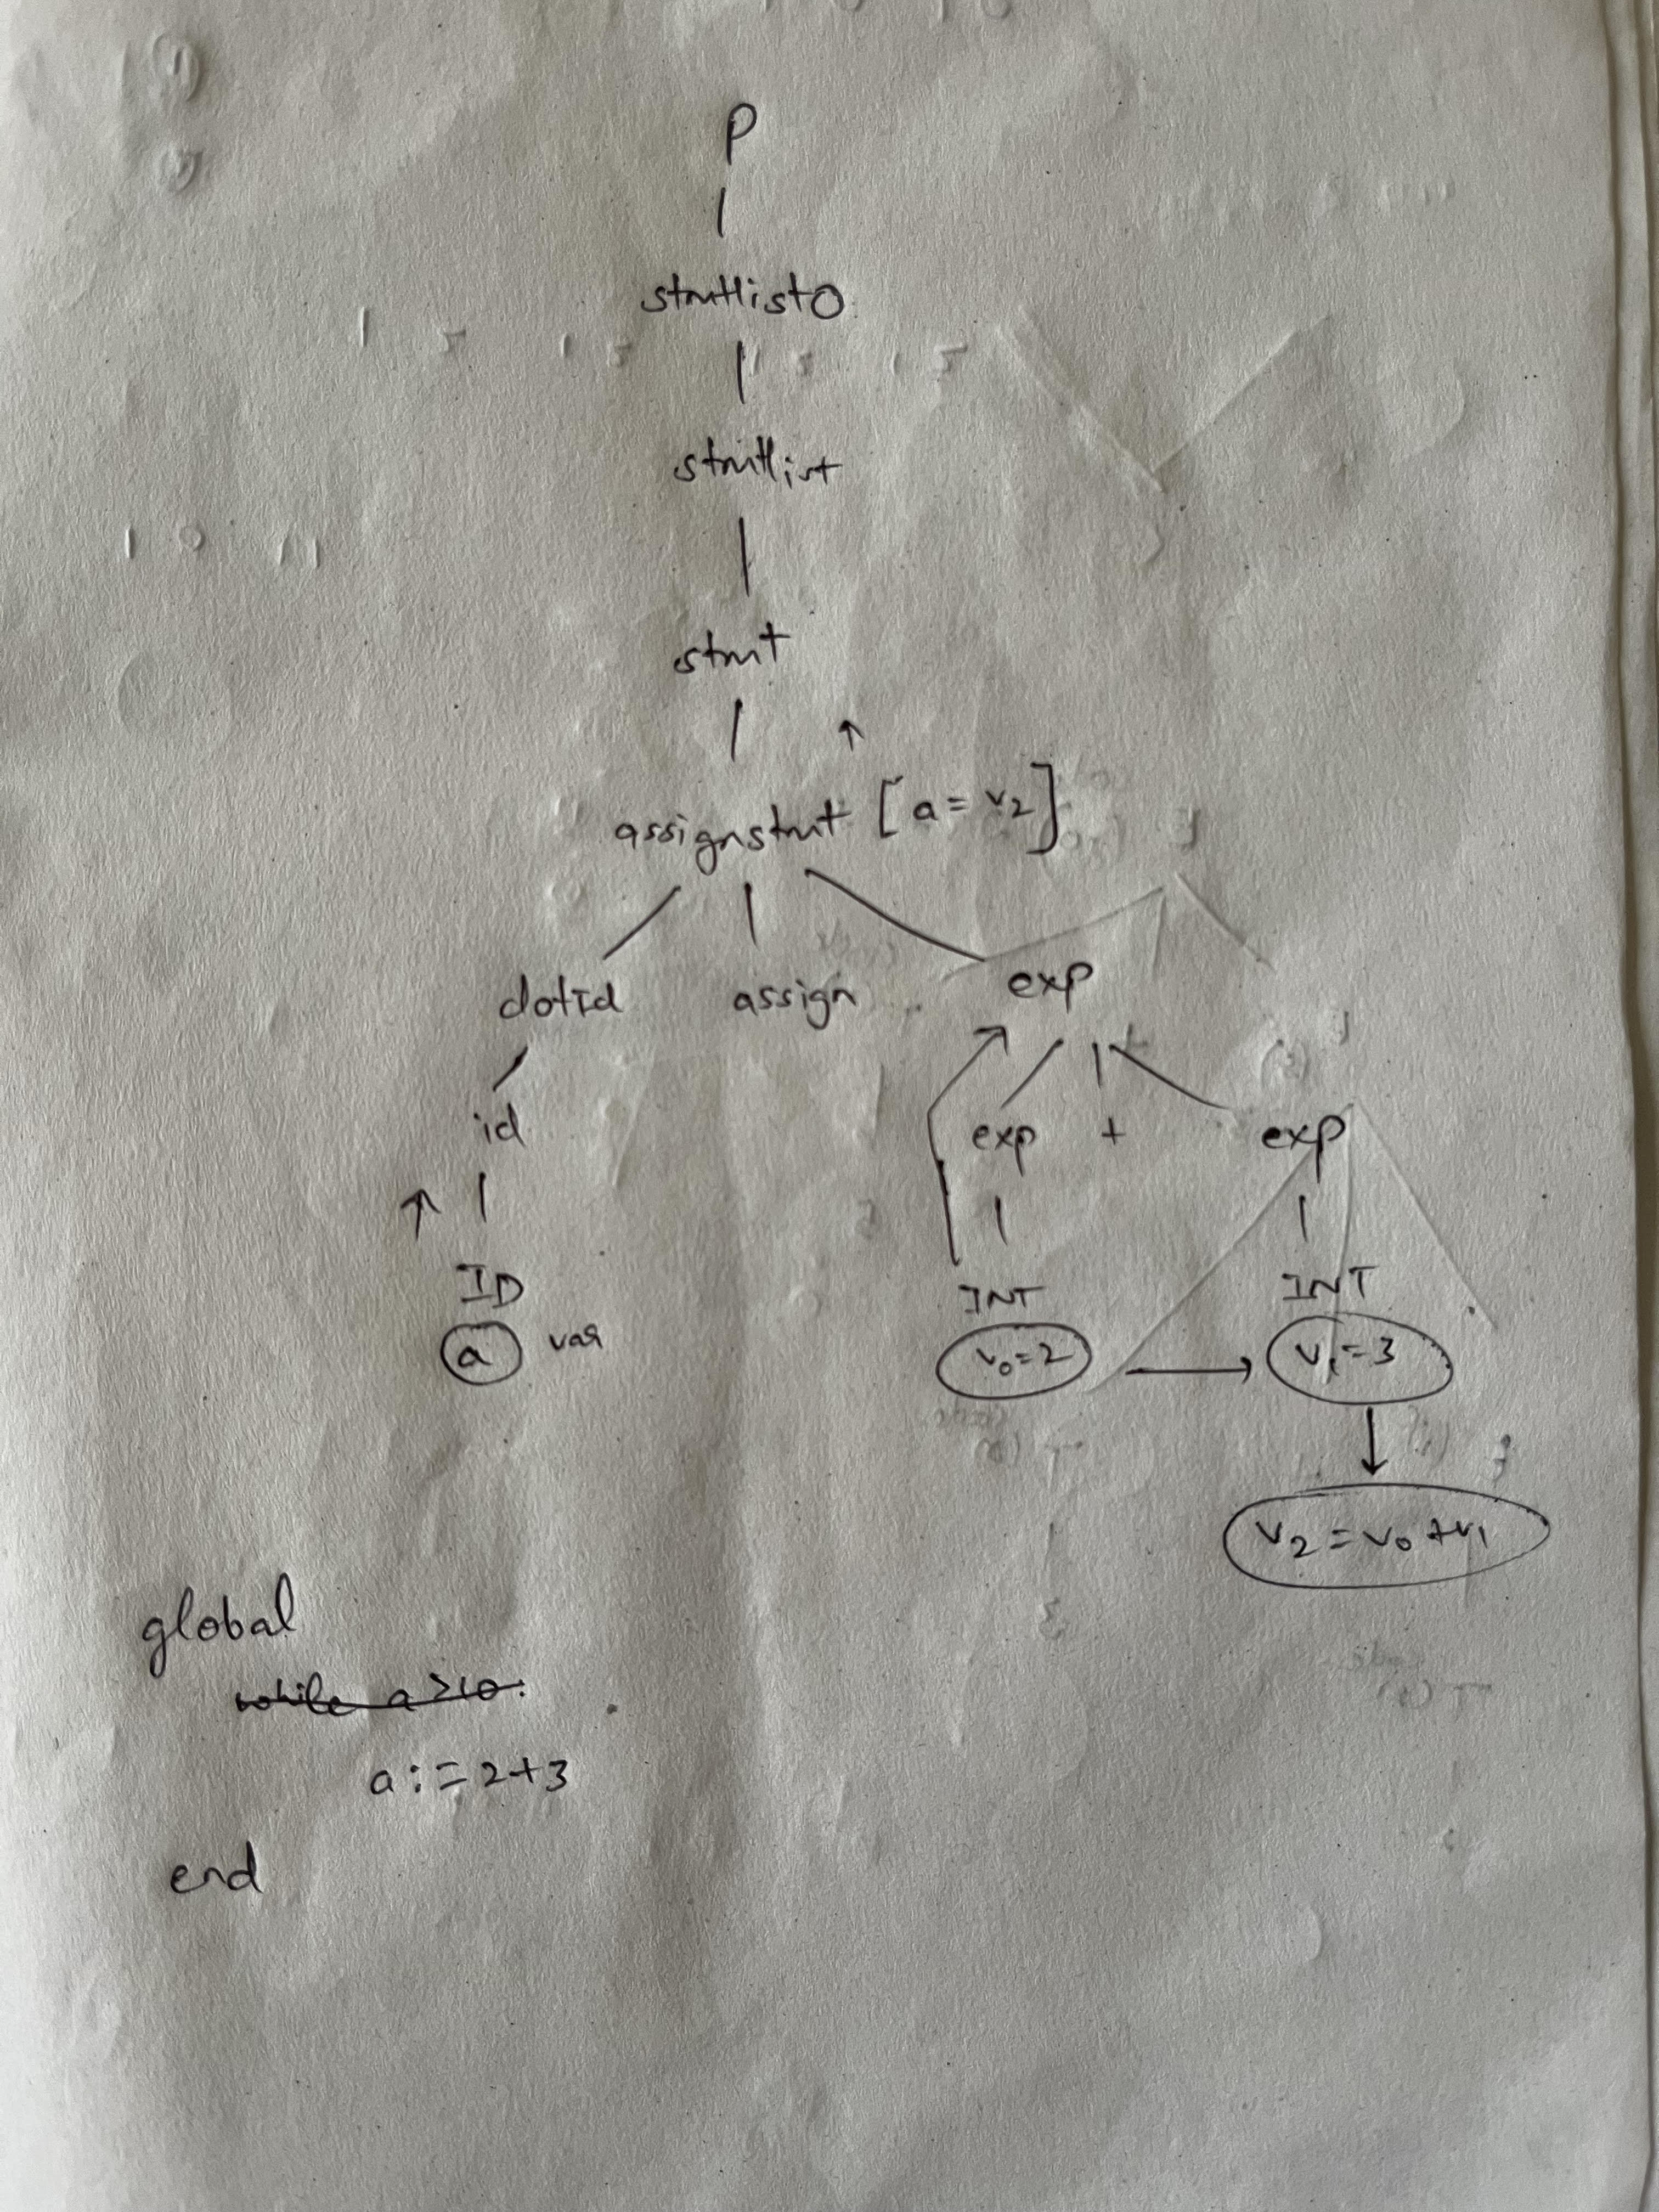 P
stmtlistO
stmtlist
stmt
assignstmt [a = v2]
dotid assign exp
id exp + exp
ID INT INT
a var v0=2 v1=3
v2 = v0 + v1
global
while a>10:
a := 2+3
end